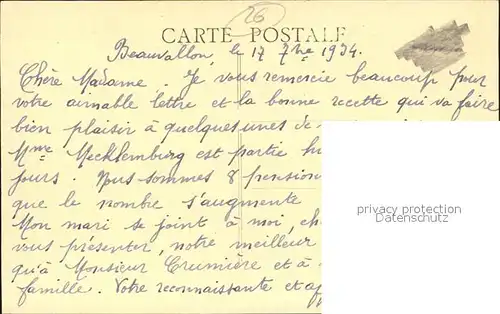 26
CARTE POSTALE
Beauvallon, le 17 7bre 1934.
Chère Madame. Je vous remercie beaucoup pour
votre aimable lettre et la bonne recette qui va faire
bien plaisir à quelques unes de
Mme Mecklemburg est partie
jours. Nous sommes 8 pension
que le nombre s'augmente
Mon mari se joint à moi, ch
vous présenter, notre meilleur
privacy protection
Datenschutz
qu'à Monsieur Crumière et à
famille. Votre reconnaissante et